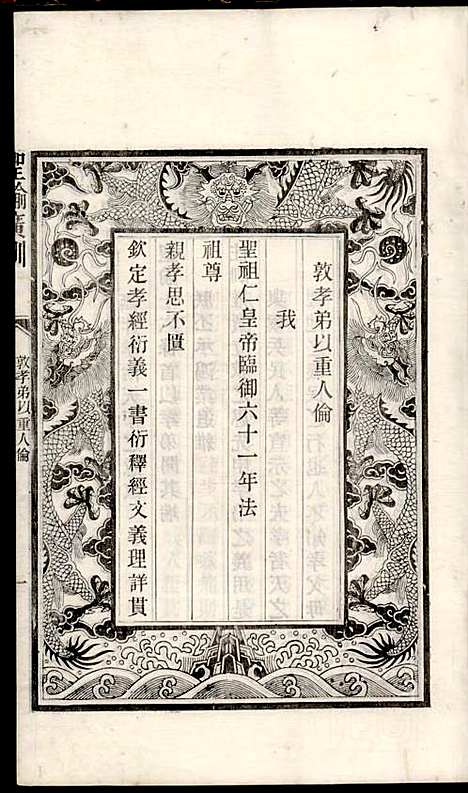 敦孝弟以重人倫
我
聖祖仁皇帝臨御六十一年法
祖尊
親孝思不匱
欽定孝經衍義一書衍釋經文義理詳貫
聖諭廣訓
敦孝弟以重人倫
一